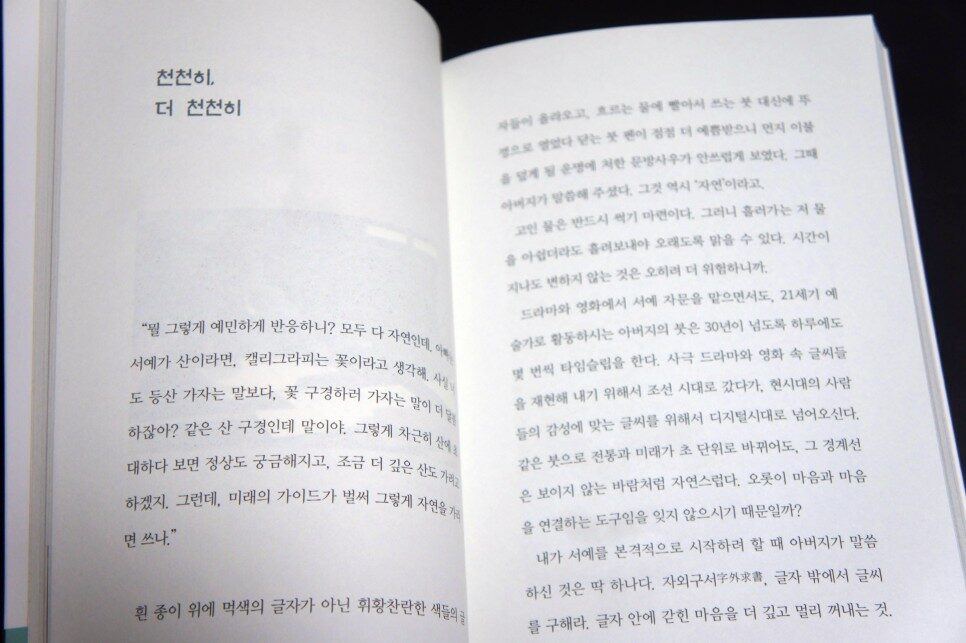 천천히,
더 천천히
“뭘 그렇게 예민하게 반응하니? 모두 다 자연인데. 아빠는
서예가 산이라면, 캘리그라피는 꽃이라고 생각해. 사실
도 등산 가자는 말보다, 꽃 구경하러 가자는 말이 더
하잖아? 같은 산 구경인데 말이야. 그렇게 차근히 산에 초
대하다 보면 정상도 궁금해지고, 조금 더 깊은 산도 가려고
하겠지. 그런데, 미래의 가이드가 벌써 그렇게 자연을 가리
면 쓰나.”
흰 종이 위에 먹색의 글자가 아닌 휘황찬란한 색들의 글
자들이 올라오고, 흐르는 물에 빨아서 쓰는 붓 대신에 뚜
껑으로 열었다 닫는 붓 펜이 점점 더 예쁨받으니 먼지 이불
을 덮게 될 운명에 처한 문방사우가 안쓰럽게 보였다. 그때
아버지가 말씀해 주셨다. 그것 역시 ‘자연’이라고.
고인 물은 반드시 썩기 마련이다. 그러니 흘러가는 저 물
을 아쉽더라도 흘려보내야 오래도록 맑을 수 있다. 시간이
지나도 변하지 않는 것은 오히려 더 위험하니까.
드라마와 영화에서 서예 자문을 맡으면서도, 21세기 예
술가로 활동하시는 아버지의 붓은 30년이 넘도록 하루에도
몇 번씩 타임슬립을 한다. 사극 드라마와 영화 속 글씨들
을 재현해 내기 위해서 조선 시대로 갔다가, 현시대의 사람
들의 감성에 맞는 글씨를 위해서 디지털시대로 넘어오신다.
같은 붓으로 전통과 미래가 초 단위로 바뀌어도, 그 경계선
은 보이지 않는 바람처럼 자연스럽다. 오롯이 마음과 마음
을 연결하는 도구임을 잊지 않으시기 때문일까?
내가 서예를 본격적으로 시작하려 할 때 아버지가 말씀
하신 것은 딱 하나다. 자외구서字外求書, 글자 밖에서 글씨
를 구해라. 글자 안에 갇힌 마음을 더 깊고 멀리 꺼내는 것.